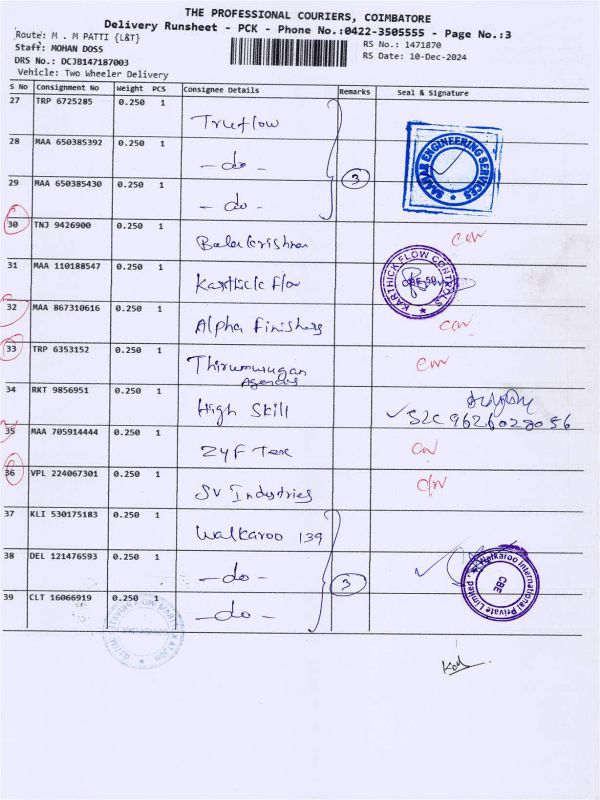 THE PROFESSIONAL COURIERS, COIMBATORE
Delivery Runsheet - PCK - Phone No.:0422-3505555 - Page No.:3
Route: M . M PATTI {L&T}
RS No.: 1471870
Staff: MOHAN DOSS
RS Date: 10-Dec-2024
DRS No.: DCJB147187003
Vehicle: Two Wheeler Delivery
S No Consignment No Weight PCS Consignee Details Remarks Seal & Signature
27 TRP 6725285 0.250 1 Trueflow
28 MAA 650385392 0.250 1 -do-
29 MAA 650385430 0.250 1 -do- 3
SAAHAS ENGINEERING SERVICES
30 TNJ 9426900 0.250 1 Balakrishnan
31 MAA 110188547 0.250 1 Karthick flow
KARTHICK FLOW CONTROLS
32 MAA 867310616 0.250 1 Alpha Finishers
33 TRP 6353152 0.250 1 Thirumurugan
Agencies
34 RKT 9856951 0.250 1 High Skill
35 MAA 705914444 0.250 1 ZYF Tex
36 VPL 224067301 0.250 1 SV Industries
37 KLI 530175183 0.250 1 Walkaroo 139
38 DEL 121476593 0.250 1 -do- 3
Walkaroo International Private Limited
CBE
39 CLT 16066919 0.250 1 -do-